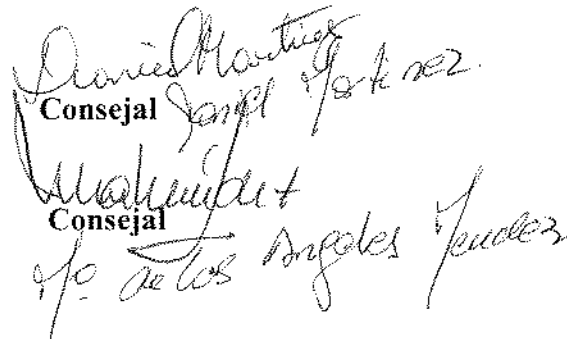 Daniel Martinez
Consejal Daniel Martinez.
Consejal
Mª de los Angeles Mendez